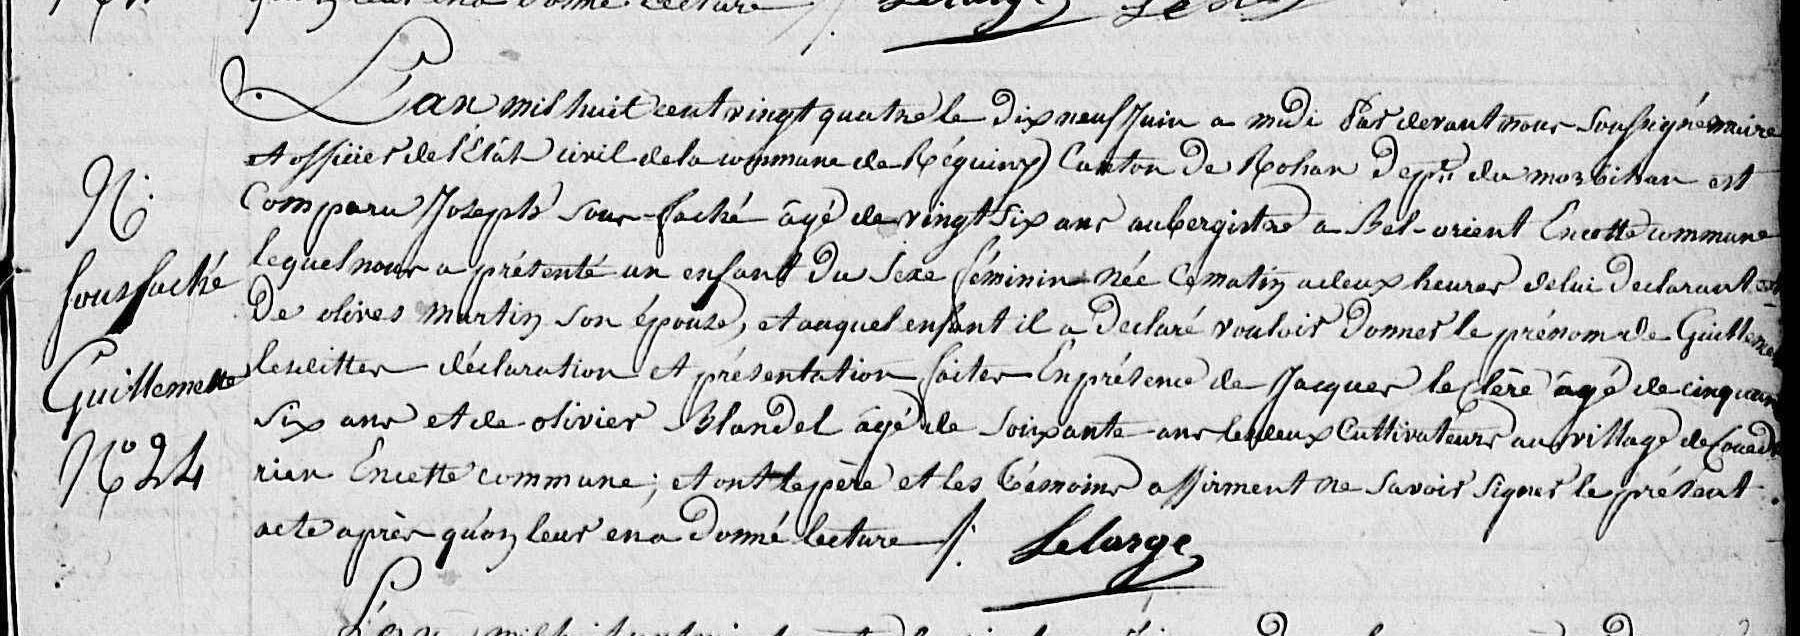 qu'on leur en a donné lecture /. Lelarge
L'an mil huit cent vingt quatre le dix neuf Juin a midi Par devant nous soussigné maire
et officier de l'État civil de la commune de Réguiny Canton de Rohan dep.nt du morbihan est
Comparu Joseph sous-faché âgé de vingt six ans aubergiste a Bel-orient En cette commune
lequel nous a présenté un enfant du sexe féminin née ce matin a deux heures de lui declarant et
De olives martin son épouse, et auquel enfant il a declaré vouloir donner le prénom de Guilleme
lesdittes déclaration et présentation faites En présence de Jacques le Clère âgé de cinquan
six ans et de olivier Blandel âgé de soixante ans les deux Cultivateurs au village de Coued
rien En cette commune; et ont le père et les témoins affirment ne savoir signer le présent
acte après qu'on leur en a donné lecture /. Lelarge
N.
sousfaché
Guillemette
N° 24